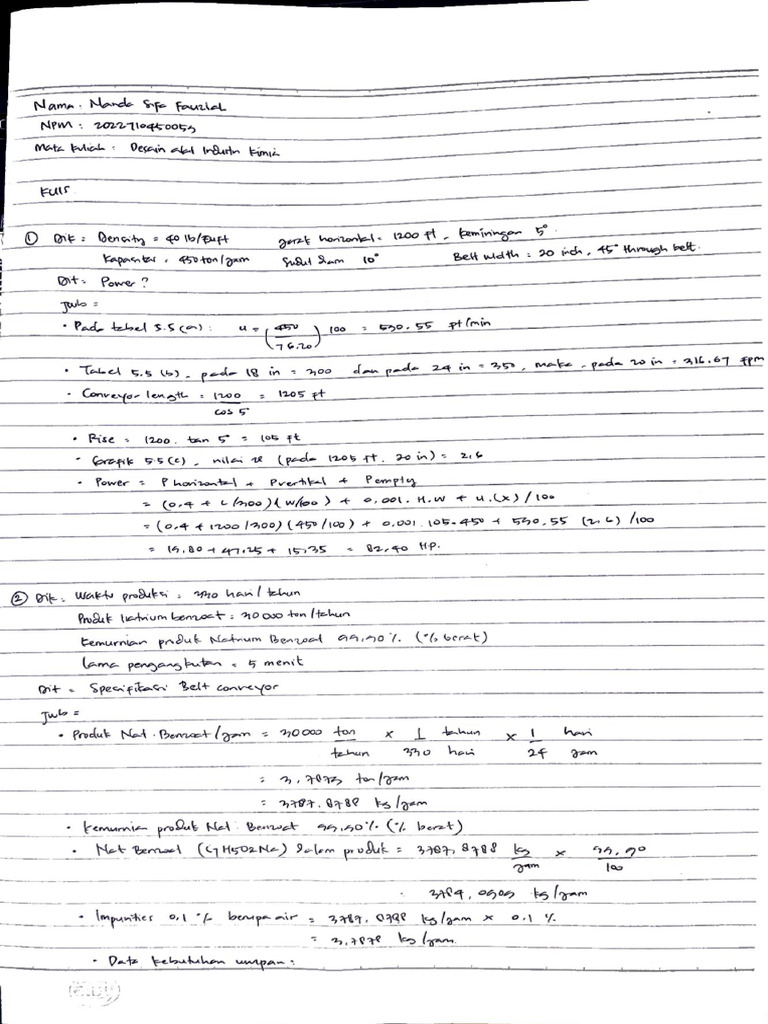 Nama : Nanda Syfa Fauziah
NPM : 202271045005
Mata kuliah : Desain alat Industri Kimia
KUIS
① Dik = Density = 40 lb/cuft jarak horizontal = 1200 ft - Kemiringan 5°
Kapasitas = 450 ton/jam Sudut diam 10° Belt width = 20 inch, 45° through belt.
Dit = Power ?
Jwb =
• Pada tabel 5.5 (a) : u = (450/76.20) 100 = 590.55 ft/min
• Tabel 5.5 (b), pada 18 in = 300 dan pada 24 in = 350, maka, pada 20 in = 316.67 fpm
• Conveyor length = 1200/cos 5° = 1205 ft
• Rise = 1200 . tan 5° = 105 ft
• Grafik 5.5 (c), nilai x (pada 1205 ft, 20 in) = 2,6
• Power = P horizontal + P vertikal + P empty
= (0.4 + L/300) (W/100) + 0.001 . H.W + u.(x) / 100
= (0.4 + 1200/300) (450/100) + 0.001 . 105.450 + 590.55 (2,6) /100
= 19.80 + 47.25 + 15.35 = 82.40 HP.
② Dik = Waktu produksi = 330 hari / tahun
Produk Natrium benzoat = 30000 ton/tahun
Kemurnian produk Natrium Benzoat 99,90% (% berat)
Lama pengangkutan = 5 menit
Dit = Spesifikasi Belt conveyor
Jwb =
• Produk Nat. Benzoat/jam = 30000 ton/tahun × 1/330 tahun/hari × 1/24 hari/jam
= 3,7878 ton/jam
= 3787.8788 kg/jam
• Kemurnian produk Nat. Benzoat 99,90% (% berat)
• Nat Benzoat (C7H5O2Na) dalam produk = 3787,8788 kg/jam × 99,90/100
= 3784,0909 kg/jam
• Impurities 0,1 % berupa air = 3787,8788 kg/jam × 0.1 %
= 3,7878 kg/jam.
• Data kebutuhan umpan :